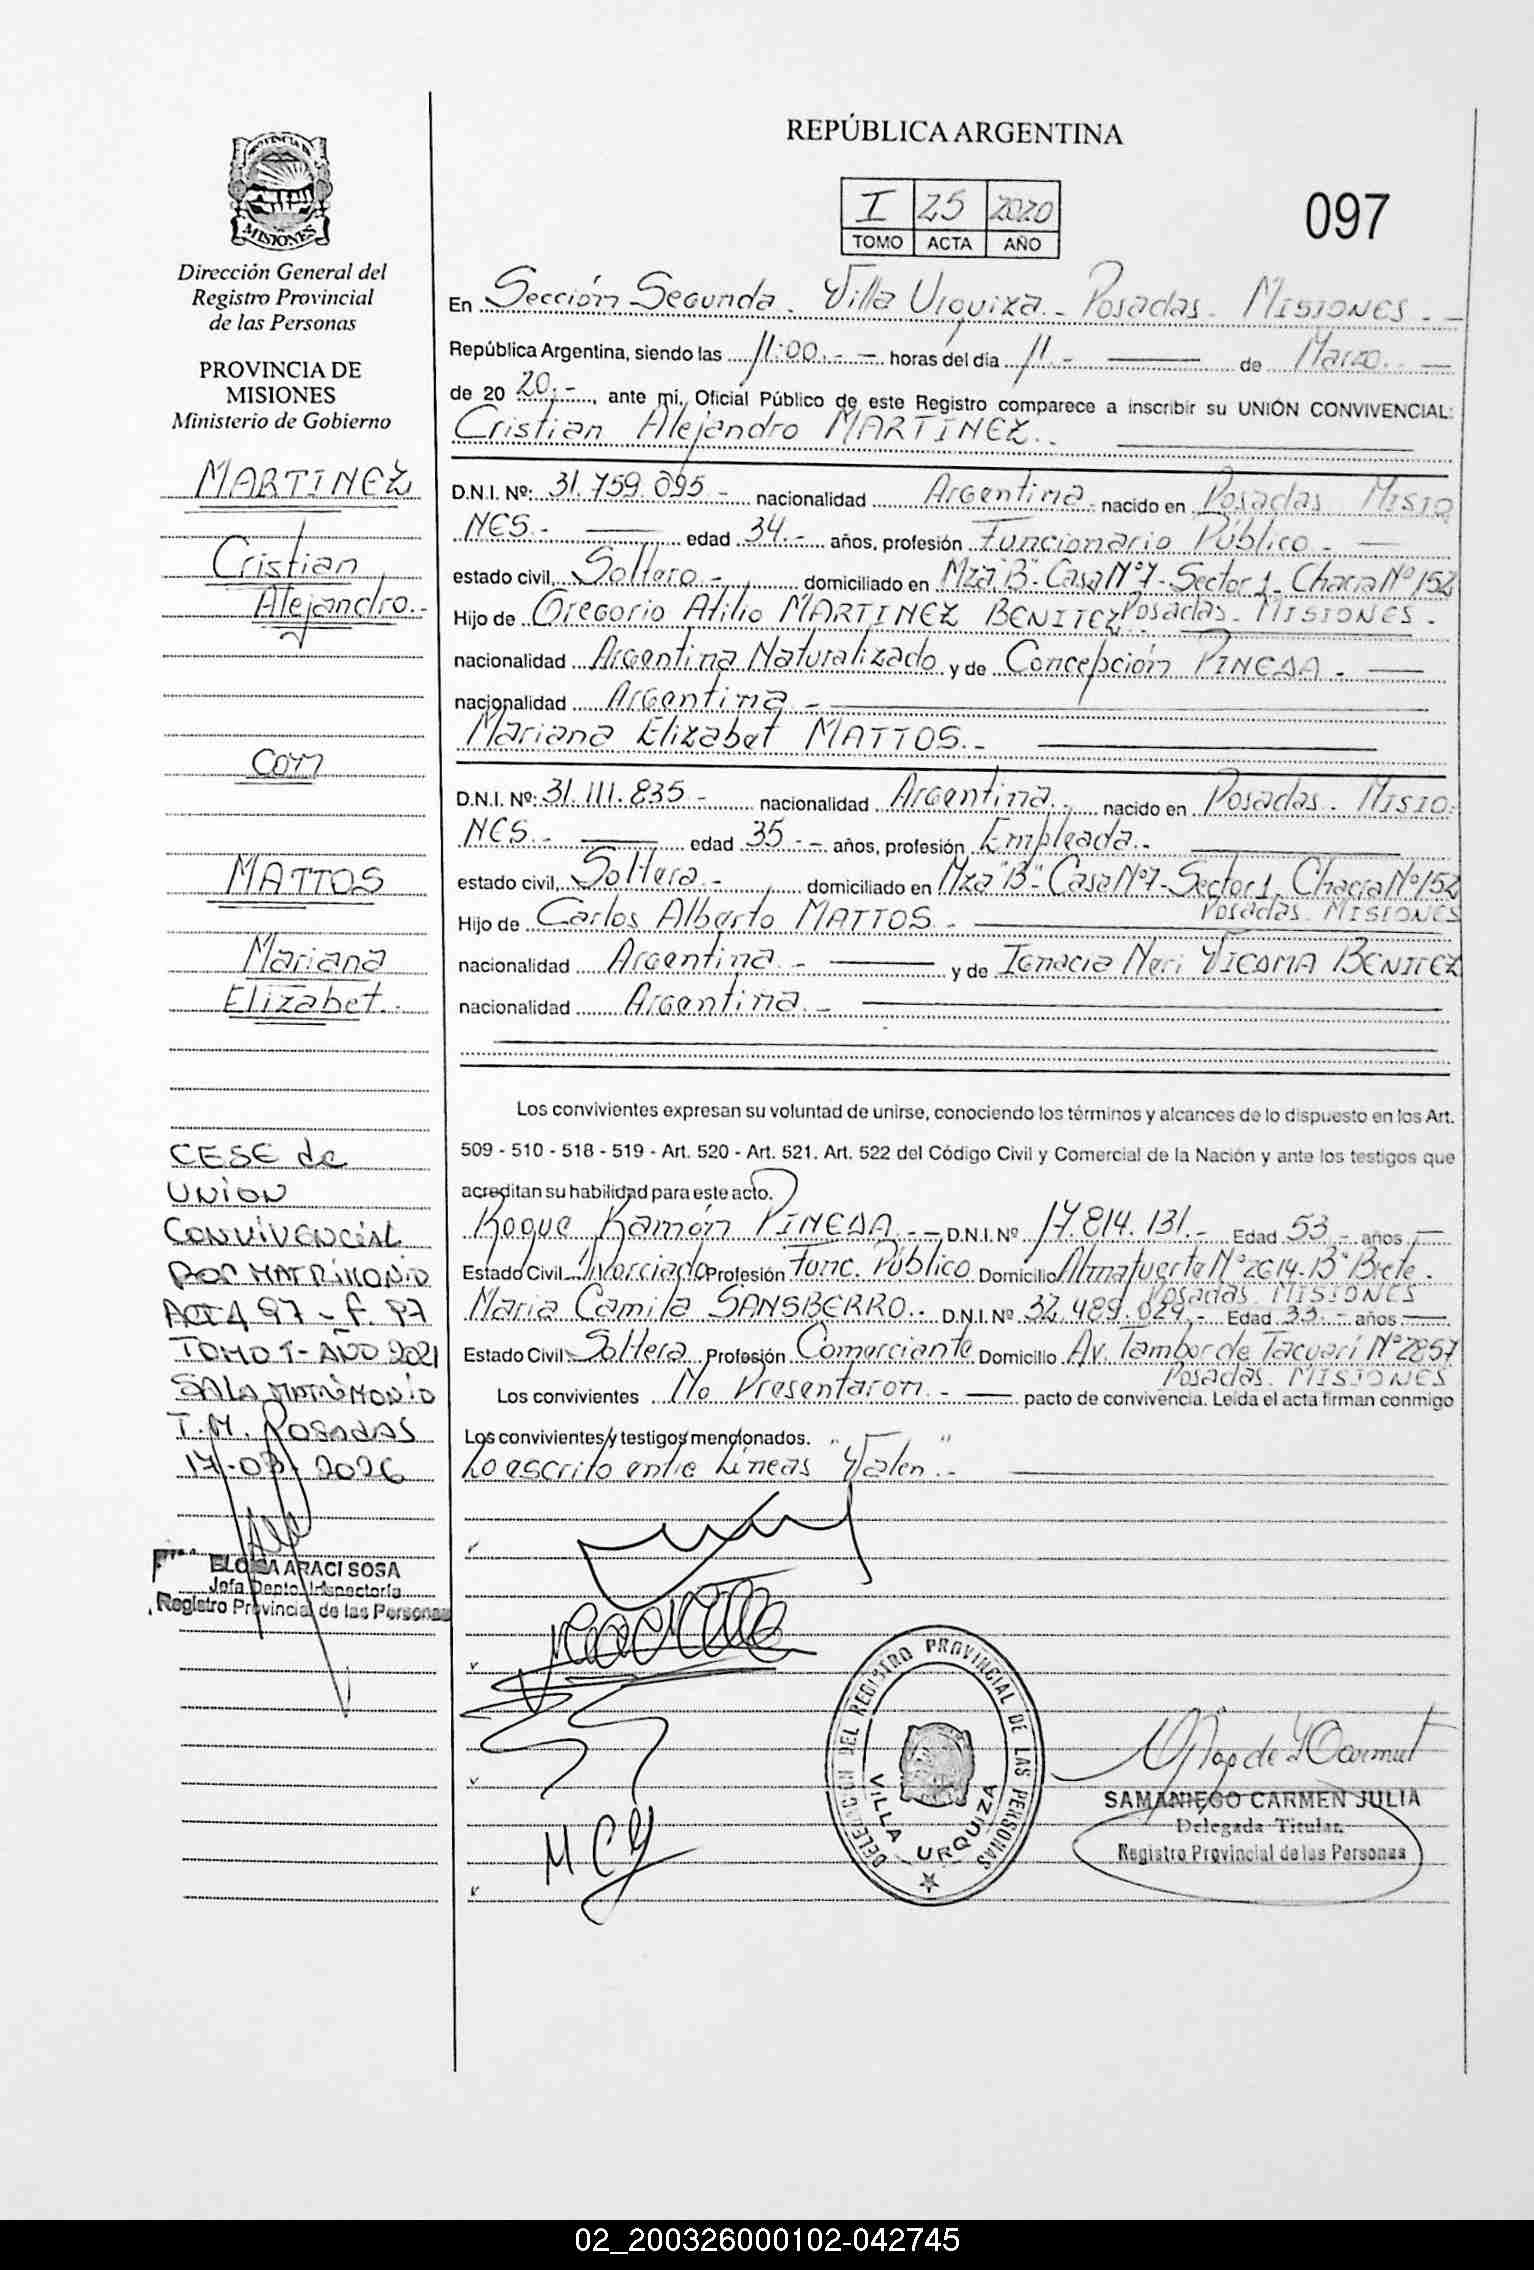 PROVINCIA DE
MISIONES
Dirección General del
Registro Provincial
de las Personas
PROVINCIA DE
MISIONES
Ministerio de Gobierno
MARTINEZ
Cristian
Alejandro.-
con
MATTOS
Mariana
Elizabet.-
CESE de
UNION
CONVIVENCIAL
POR MATRIMONIO
ACTA 97 - F. 97
TOMO 1 - AÑO 2021
SALA MATRIMONIO
T.M. POSADAS
17-03-2026
ELOISA ARACI SOSA
Jefa Depto. Inspectoría
Registro Provincial de las Personas
REPÚBLICA ARGENTINA
I 25 2020
TOMO ACTA AÑO
097
En Sección Segunda. Villa Urquiza.- Posadas. MISIONES.-
República Argentina, siendo las 11:00.- horas del día 11.- de Marzo.-
de 20 20.-, ante mi, Oficial Público de este Registro comparece a inscribir su UNIÓN CONVIVENCIAL:
Cristian Alejandro MARTINEZ.-
D.N.I. Nº: 31.759.095.- nacionalidad Argentina. nacido en Posadas MISIO
NES.- edad 34.- años, profesión Funcionario Público.-
estado civil, Soltero.- domiciliado en Mza "B"- Casa Nº7- Sector 1- Chacra Nº152
Hijo de Gregorio Atilio MARTINEZ BENITEZ Posadas. MISIONES.
nacionalidad Argentina Naturalizado y de Concepción PINEDA.-
nacionalidad Argentina.-
Mariana Elizabet MATTOS.-
D.N.I. Nº: 31.111.835.- nacionalidad Argentina.- nacido en Posadas. MISIO
NES.- edad 35.- años, profesión Empleada.-
estado civil, Soltera.- domiciliado en Mza "B"- Casa Nº7- Sector 1. Chacra Nº152
Posadas. MISIONES
Hijo de Carlos Alberto MATTOS.-
nacionalidad Argentina.- y de Ignacia Neri VIEDMA BENITEZ
nacionalidad Argentina.-
Los convivientes expresan su voluntad de unirse, conociendo los términos y alcances de lo dispuesto en los Art.
509 - 510 - 518 - 519 - Art. 520 - Art. 521. Art. 522 del Código Civil y Comercial de la Nación y ante los testigos que
acreditan su habilidad para este acto.
Roque Ramón PINEDA.- D.N.I. Nº 17.814.131.- Edad 53.- años
Estado Civil Divorciado Profesión Func. Público Domicilio Almafuerte Nº2614. Bº Brete.
Posadas MISIONES
Maria Camila SANSBERRO.- D.N.I. Nº 32.489.029.- Edad 33.- años
Estado Civil Soltera Profesión Comerciante Domicilio Av. Tambor de Tacuarí Nº2857
Posadas. MISIONES
Los convivientes No Presentaron.- pacto de convivencia. Leída el acta firman conmigo
Los convivientes y testigos mencionados.
Lo escrito entre Líneas "Valen".-
DELEGACION DEL REGISTRO PROVINCIAL DE LAS PERSONAS
VILLA URQUIZA
SAMANIEGO CARMEN JULIA
Delegada Titular
Registro Provincial de las Personas
02_200326000102-042745